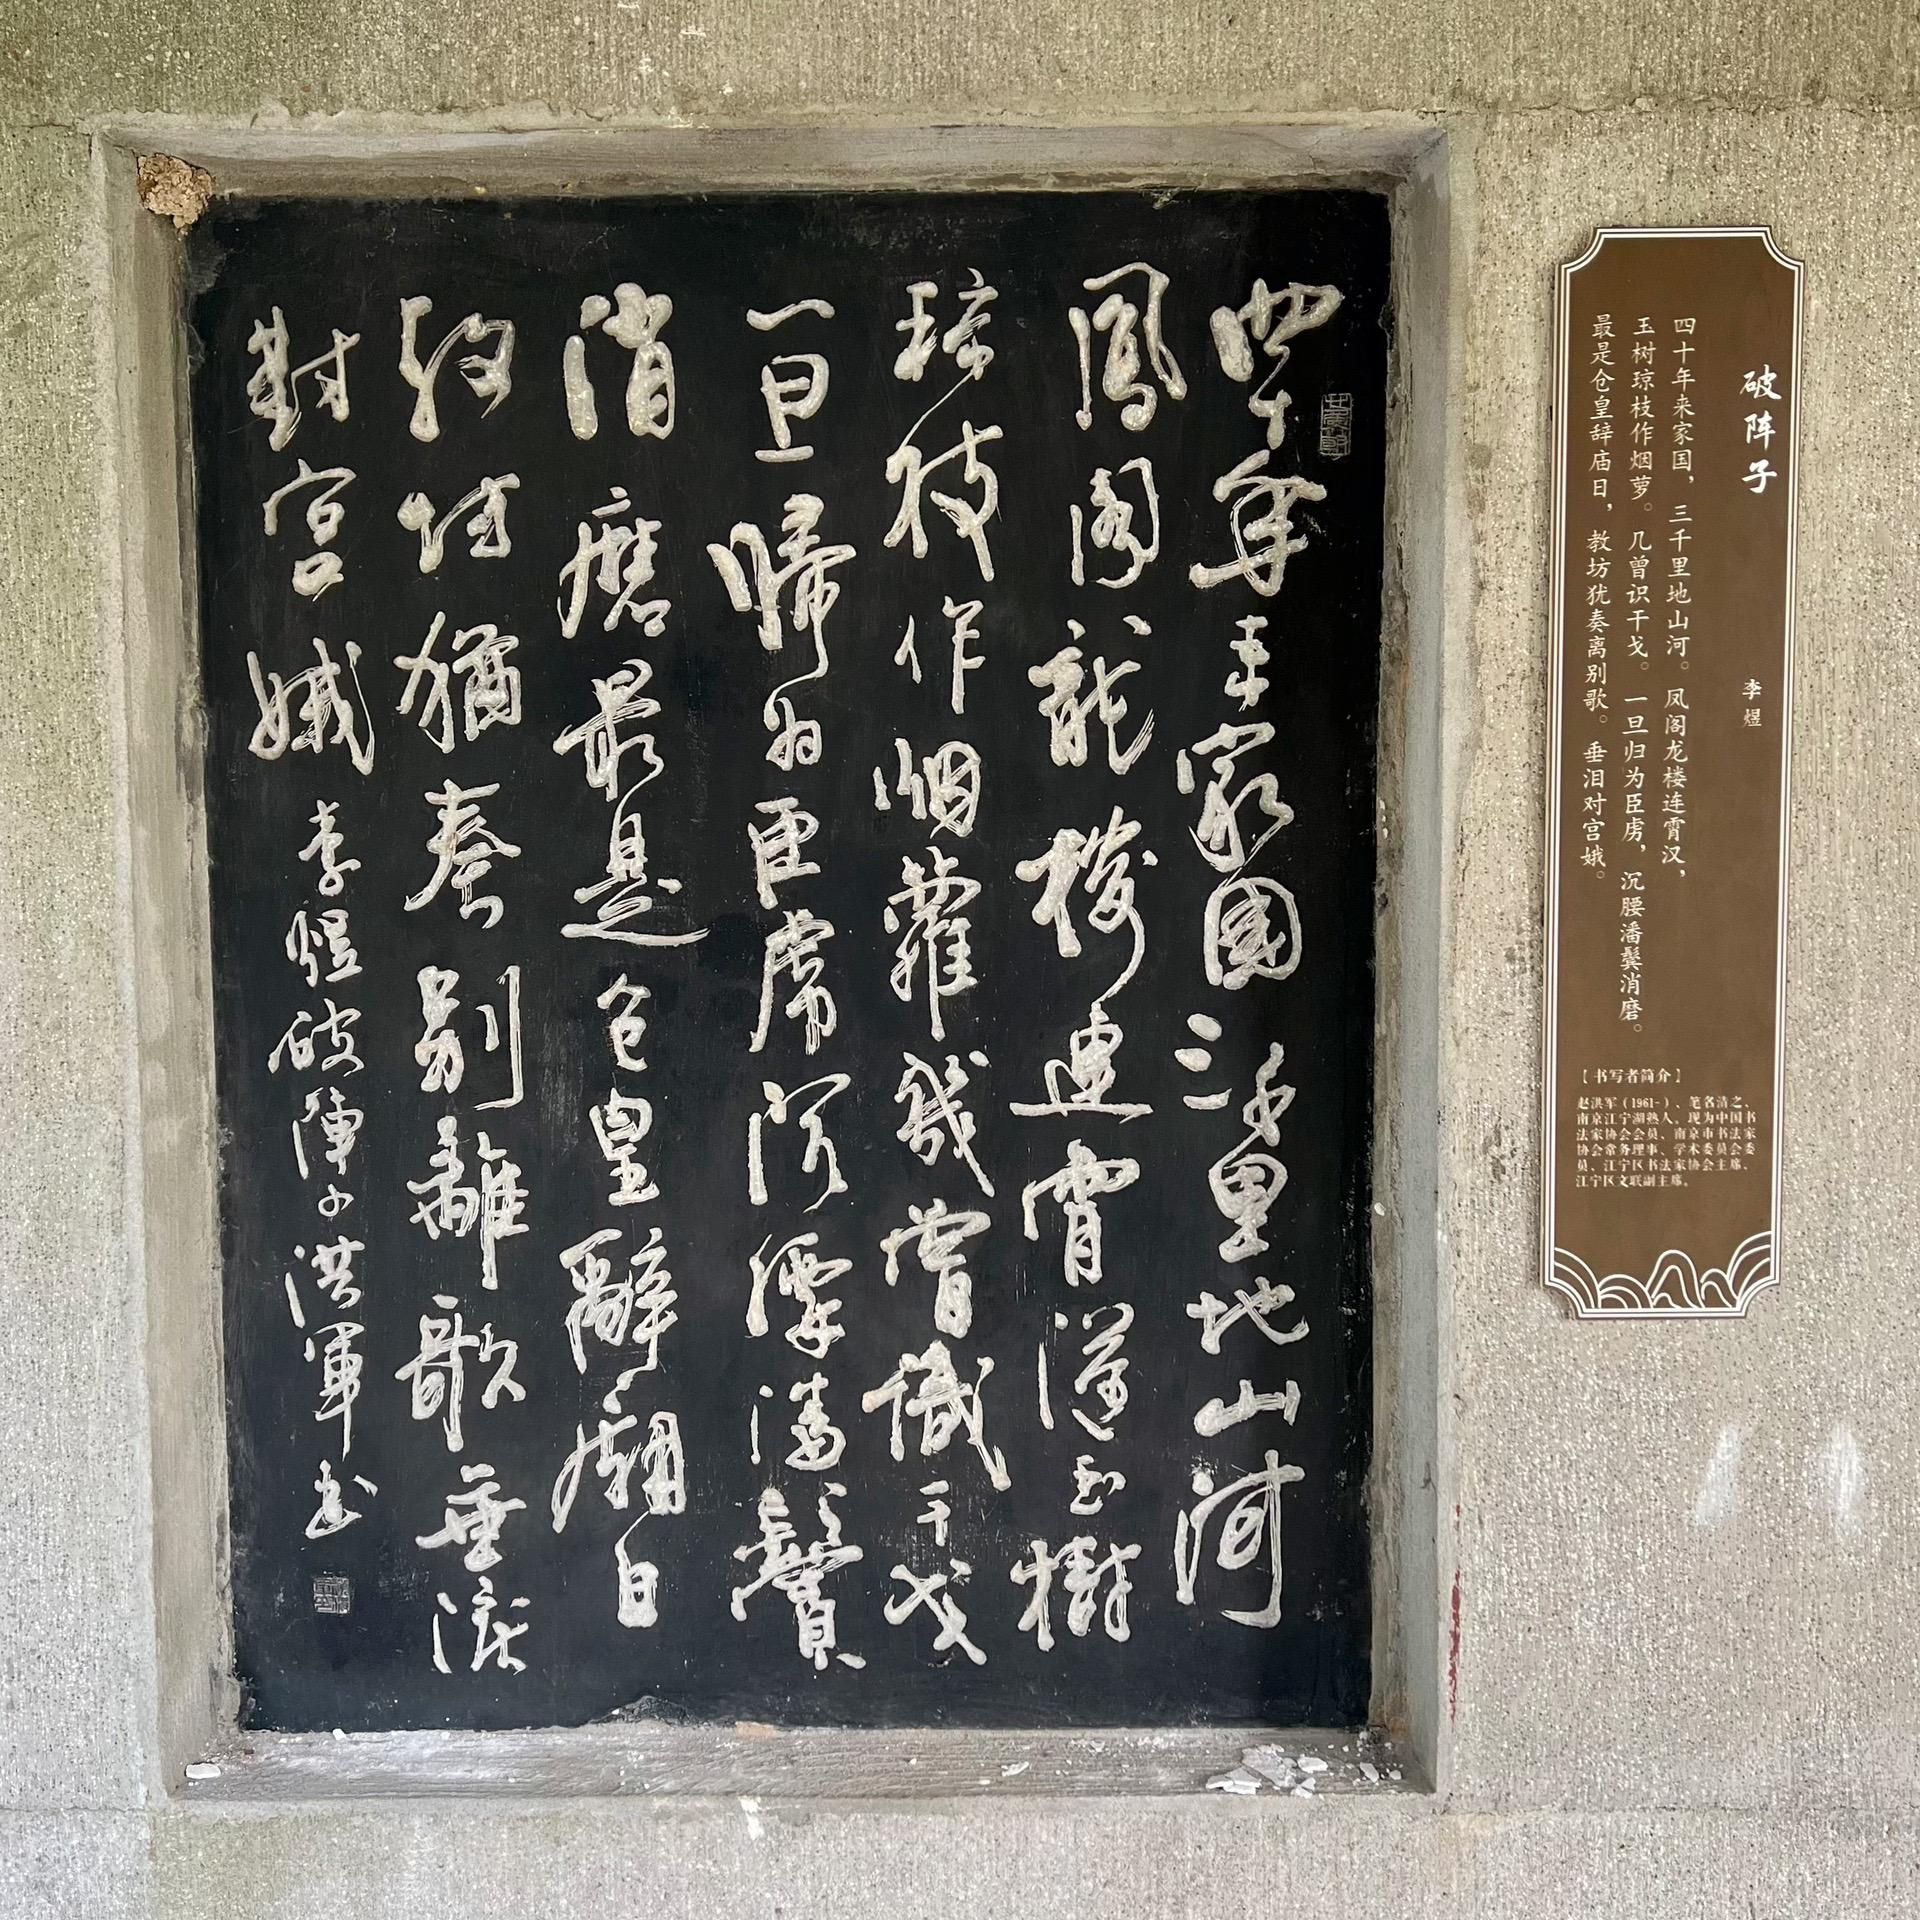 四十年来家國三千里地山河
鳳阁龍樓連霄漢玉樹
琼枝作烟蘿幾曾識干戈
一旦歸为臣虜沉腰潘鬢
消磨最是仓皇辭廟日
教坊猶奏别離歌垂淚
對宮娥 李煜破陣子洪軍书
破阵子 李煜
四十年来家国，三千里地山河。凤阁龙楼连霄汉，
玉树琼枝作烟萝。几曾识干戈。一旦归为臣虏，沉腰潘鬓消磨。
最是仓皇辞庙日，教坊犹奏离别歌。垂泪对宫娥。
【书写者简介】
赵洪军（1961-）、笔名清之、
南京江宁湖熟人。现为中国书
法家协会会员、南京市书法家
协会常务理事、学术委员会委
员、江宁区书法家协会主席、
江宁区文联副主席。